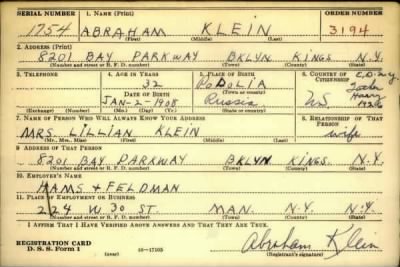 SERIAL NUMBER 1. NAME (Print) ORDER NUMBER
1754 ABRAHAM KLEIN 3194
(First) (Middle) (Last)
2. ADDRESS (Print)
8201 BAY PARKWAY BKLYN KINGS N.Y.
(Number and street or R. F. D. number) (Town) (County) (State)
3. TELEPHONE 4. AGE IN YEARS 5. PLACE OF BIRTH 6. COUNTRY OF CITIZENSHIP
32 PODOLIA
DATE OF BIRTH (Town or county)
JAN-2-1908 Russia U.S.
(Exchange) (Number) (Mo.) (Day) (Yr.) (State or country)
7. NAME OF PERSON WHO WILL ALWAYS KNOW YOUR ADDRESS 8. RELATIONSHIP OF THAT PERSON
MRS. LILLIAN KLEIN wife
(Mr., Mrs., Miss) (First) (Middle) (Last)
9. ADDRESS OF THAT PERSON
8201 BAY PARKWAY BKLYN KINGS N.Y.
(Number and street or R. F. D. number) (Town) (County) (State)
10. EMPLOYER'S NAME
HAMS + FELDMAN
11. PLACE OF EMPLOYMENT OR BUSINESS
224 W 30 ST. MAN. N.Y. N.Y.
(Number and street or R. F. D. number) (Town) (County) (State)
I AFFIRM THAT I HAVE VERIFIED ABOVE ANSWERS AND THAT THEY ARE TRUE.
REGISTRATION CARD
D. S. S. Form 1 16-17105 Abraham Klein
(Registrant's signature)